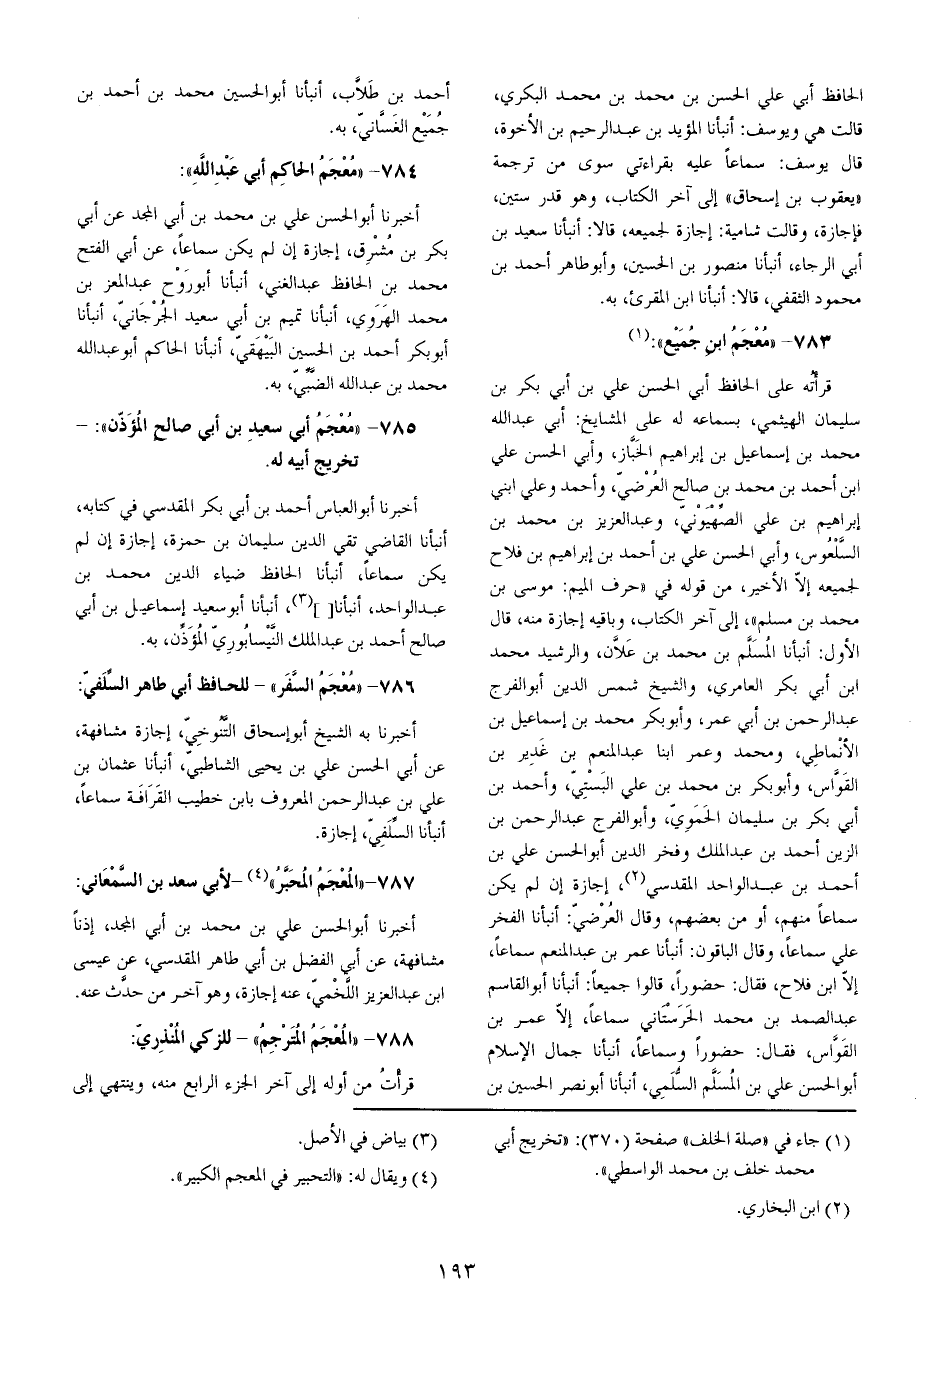 الحافظ أبي علي الحسن بن محمد بن محمد البكري،
قالت هي ويوسف: أنبأنا المؤيد بن عبدالرحيم بن الأخوة،
قال يوسف: سماعاً عليه بقراءتي سوى من ترجمة
«يعقوب بن إسحاق» إلى آخر الكتاب، وهو قدر ستين،
فإجازة، وقالت شامية: إجازة لجميعه، قالا: أنبأنا سعيد بن
أبي الرجاء، أنبأنا منصور بن الحسين، وأبوطاهر أحمد بن
محمود الثقفي، قالا: أنبأنا ابن المقرئ، به.
٧٨٣- «مُعْجَمُ ابنِ جُمَيْع»:(١)
قرأتُه على الحافظ أبي الحسن علي بن أبي بكر بن
سليمان الهيثمي، بسماعه له على المشايخ: أبي عبدالله
محمد بن إسماعيل بن إبراهيم الخَبَّاز، وأبي الحسن علي
ابن أحمد بن محمد بن صالح العُرْضيّ، وأحمد وعلي ابني
إبراهيم بن علي الصّهْيُونيّ، وعبدالعزيز بن محمد بن
السَّلْعُوس، وأبي الحسن علي بن أحمد بن إبراهيم بن فلاح
لجميعه إلاّ الأخير، من قوله في «حرف الميم: موسى بن
محمد بن مسلم»، إلى آخر الكتاب، وباقيه إجازة منه، قال
الأول: أنبأنا المُسَلَّم بن محمد بن عَلاَّن، والرشيد محمد
ابن أبي بكر العامري، والشيخ شمس الدين أبوالفرج
عبدالرحمن بن أبي عمر، وأبوبكر محمد بن إسماعيل بن
الأنْماطِي، ومحمد وعمر ابنا عبدالمنعم بن غَدِير بن
القَوَّاس، وأبوبكر بن محمد بن علي البَسْتِيّ، وأحمد بن
أبي بكر بن سليمان الحَمَويّ، وأبوالفرج عبدالرحمن بن
الزين أحمد بن عبدالملك وفخر الدين أبوالحسن علي بن
أحمد بن عبدالواحد المقدسي(٢)، إجازة إن لم يكن
سماعاً منهم، أو من بعضهم، وقال العُرْضيّ: أنبأنا الفخر
علي سماعاً، وقال الباقون: أنبأنا عمر بن عبدالمنعم سماعاً،
إلاّ ابن فلاح، فقال: حضوراً، قالوا جميعاً: أنبأنا أبوالقاسم
عبدالصمد بن محمد الحَرَسْتَاني سماعاً، إلاّ عمر بن
القَوَّاس، فقال: حضوراً وسماعاً، أنبأنا جمال الإسلام
أبوالحسن علي بن المُسَلَّم السُّلَمِي، أنبأنا أبونصر الحسين بن
أحمد بن طَلاَّب، أنبأنا أبوالحسين محمد بن أحمد بن
جُمَيْع الغَسَّانيّ، به.
٧٨٤- «مُعْجَمُ الحاكِمِ أبي عَبْدِاللَّهِ»:
أخبرنا أبوالحسن علي بن محمد بن أبي المجد عن أبي
بكر بن مُشْرِق، إجازة إن لم يكن سماعاً، عن أبي الفتح
محمد بن الحافظ عبدالغني، أنبأنا أبورَوْح عبدالمعز بن
محمد الهَرَوي، أنبأنا تميم بن أبي سعيد الجُرْجَانيّ، أنبأنا
أبوبكر أحمد بن الحسين البَيْهَقيّ، أنبأنا الحاكم أبوعبدالله
محمد بن عبدالله الضَّبِّيّ، به.
٧٨٥- «مُعْجَمُ أبي سعيدِ بن أبي صالحِ المُؤَذّن»: –
تخريج أبيه له.
أخبرنا أبوالعباس أحمد بن أبي بكر المقدسي في كتابه،
أنبأنا القاضي تقي الدين سليمان بن حمزة، إجازة إن لم
يكن سماعاً، أنبأنا الحافظ ضياء الدين محمد بن
عبدالواحد، أنبأنا[ ](٣)، أنبأنا أبوسعيد إسماعيل بن أبي
صالح أحمد بن عبدالملك النَّيْسابُوريّ المُؤَذِّن، به.
٧٨٦- «مُعْجَمُ السَّفَر» – للحافظ أبي طاهر السِّلَفيّ:
أخبرنا به الشيخ أبوإسحاق التَّنُوخيّ، إجازة مشافهة،
عن أبي الحسن علي بن يحيى الشاطبيّ، أنبأنا عثمان بن
علي بن عبدالرحمن المعروف بابن خطيب القَرَافَة سماعاً،
أنبأنا السِّلَفيّ، إجازة.
٧٨٧-«المُعْجَمُ المُحَبَّرُ»(٤)–لأبي سعد بن السَّمْعَاني:
أخبرنا أبوالحسن علي بن محمد بن أبي المجد، إذناً
مشافهة، عن أبي الفضل بن أبي طاهر المقدسي، عن عيسى
ابن عبدالعزيز اللَّخْميّ، عنه إجازة، وهو آخر من حدَّث عنه.
٧٨٨- «المُعْجَمُ المُتَرْجِمُ» – للزكي المُنْذِريّ:
قرأتُ من أوله إلى آخر الجزء الرابع منه، وينتهي إلى
(١) جاء في «صلة الخلف» صفحة (٣٧٠): «تخريج أبي
محمد خلف بن محمد الواسطي».
(٢) ابن البخاري.
(٣) بياض في الأصل.
(٤) ويقال له: «التحبير في المعجم الكبير».
١٩٣